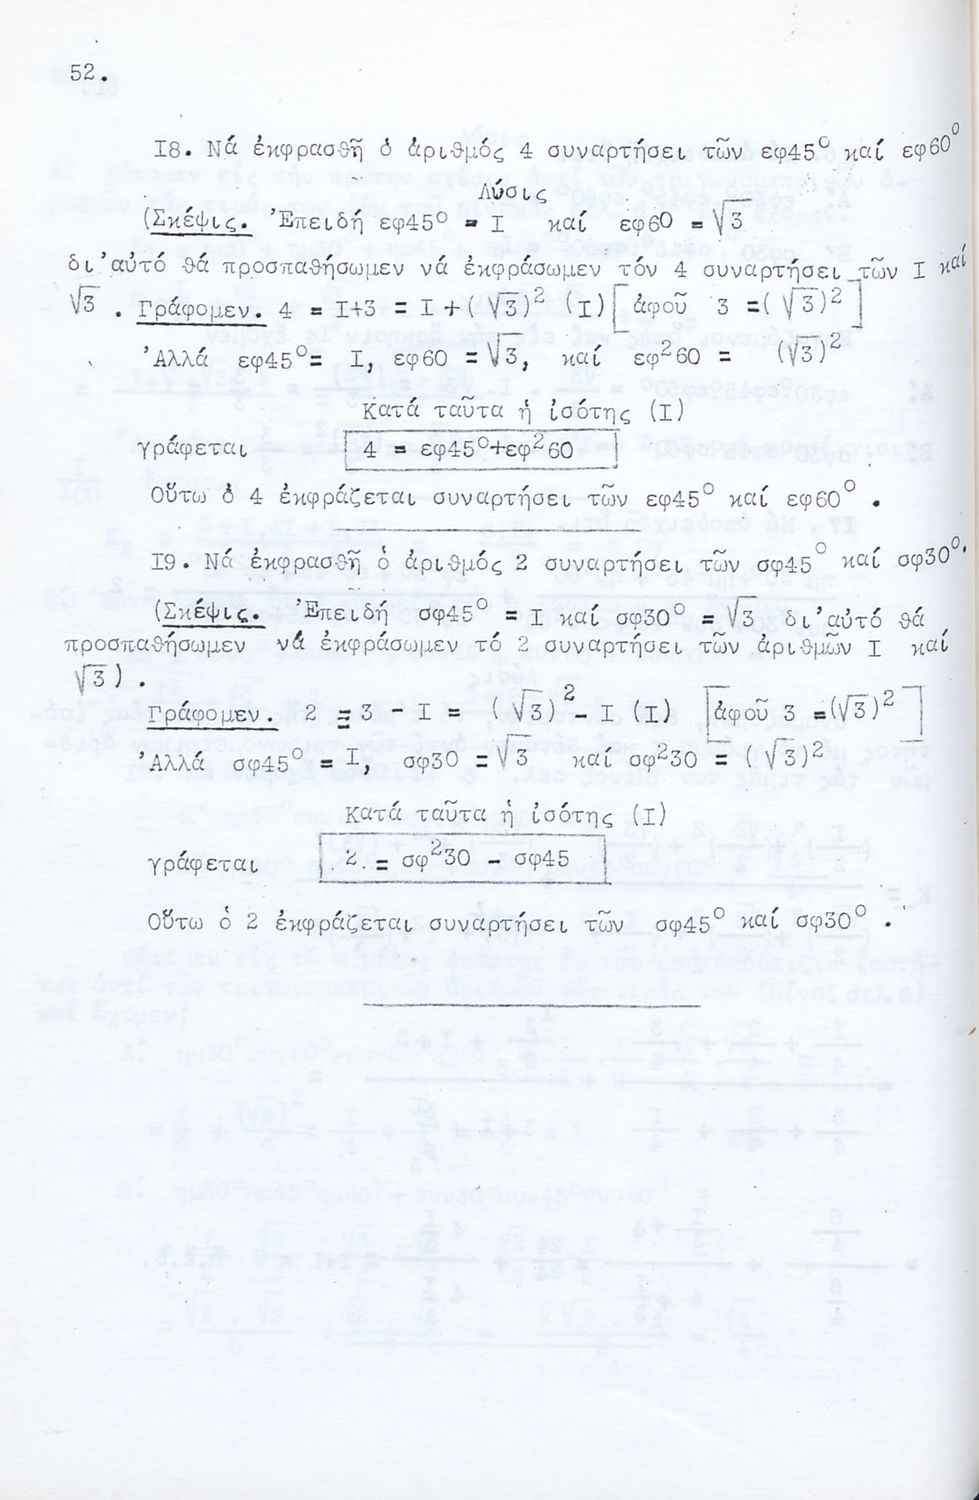 52.
I8. Νά ἐκφρασθῇ ὁ ἀριθμός 4 συναρτήσει τῶν εφ45⁰ καί εφ60⁰
Λύσις
(Σκέψις. Ἐπειδή εφ45⁰ = I καί εφ60 = √3
δι'αὐτό θά προσπαθήσωμεν νά ἐκφράσωμεν τόν 4 συναρτήσει τῶν I καί
√3 . Γράφομεν. 4 = I+3 = I+(√3)² (I) [ἀφοῦ 3 =(√3)²]
Ἀλλά εφ45⁰= I, εφ60 =√3, καί εφ²60 = (√3)²
Κατά ταῦτα ἡ ἰσότης (I)
γράφεται 4 = εφ45⁰+εφ²60
Οὕτω ὁ 4 ἐκφράζεται συναρτήσει τῶν εφ45⁰ καί εφ60⁰ .
I9. Νά ἐκφρασθῇ ὁ ἀριθμός 2 συναρτήσει τῶν σφ45⁰ καί σφ30⁰.
(Σκέψις. Ἐπειδή σφ45⁰ = I καί σφ30⁰ =√3 δι'αὐτό θά
προσπαθήσωμεν νά ἐκφράσωμεν τό 2 συναρτήσει τῶν ἀριθμῶν I καί
√3) .
Γράφομεν. 2 = 3 - I = (√3)² - I (I) [ἀφοῦ 3 =(√3)²]
Ἀλλά σφ45⁰= I, σφ30 =√3 καί σφ²30 = (√3)²
Κατά ταῦτα ἡ ἰσότης (I)
γράφεται 2 = σφ²30 - σφ45
Οὕτω ὁ 2 ἐκφράζεται συναρτήσει τῶν σφ45⁰ καί σφ30⁰ .